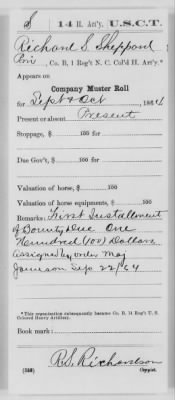 S | 14 H. Art'y. | U.S.C.T.
Richard S. Sheppard
Priv, Co. B, 1 Reg't N. C. Col'd H. Art'y.*
Appears on
Company Muster Roll
for Sept & Oct, 1864.
Present or absent Present
Stoppage, $ 100 for
Due Gov't, $ 100 for
Valuation of horse, $ 100
Valuation of horse equipments, $ 100
Remarks: First Installment
of Bounty Due One
Hundred (100) Dollars
assigned by order Maj
Jameson Sep 22/64
*This organization subsequently became Co. B, 14 Reg't U. S.
Colored Heavy Artillery.
Book mark:
R.S. Richardson
(358) Copyist.